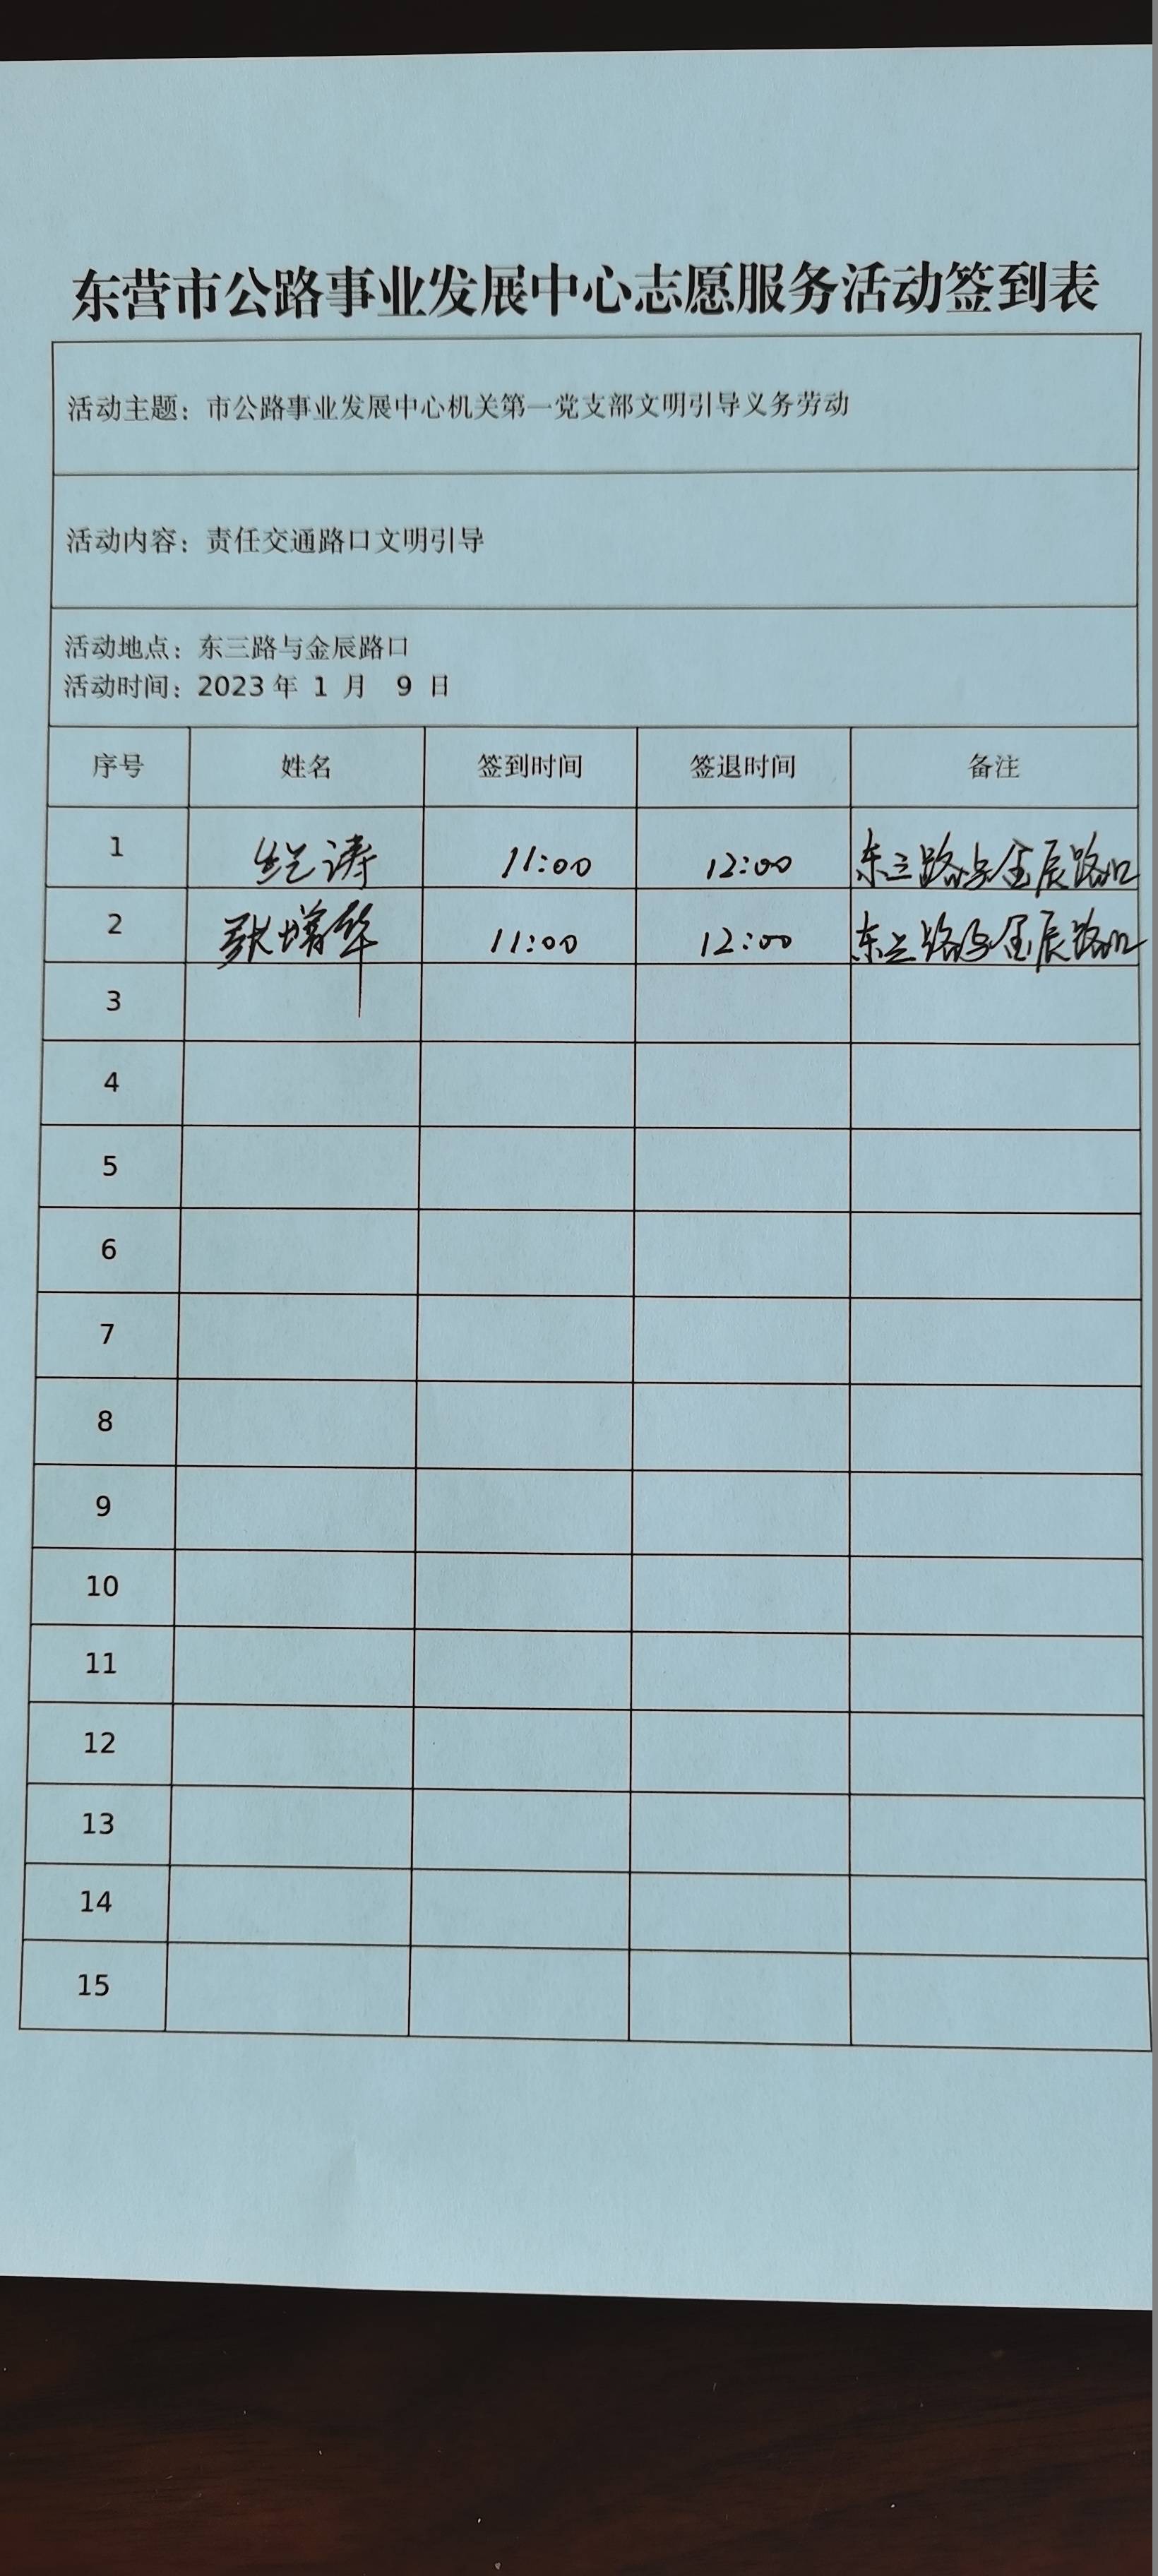 东营市公路事业发展中心志愿服务活动签到表
活动主题：市公路事业发展中心机关第一党支部文明引导义务劳动
活动内容：责任交通路口文明引导
活动地点：东三路与金辰路口
活动时间：2023年 1 月 9 日
序号 姓名 签到时间 签退时间 备注
1 涛 11:00 12:00 东三路与金辰路口
2 张增华 11:00 12:00 东三路与金辰路口
3
4
5
6
7
8
9
10
11
12
13
14
15